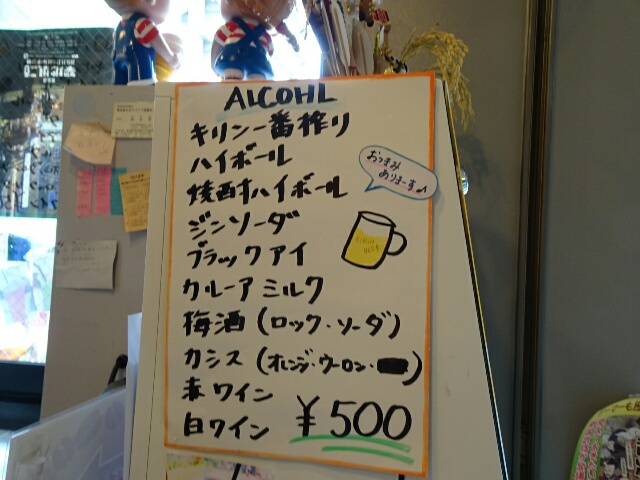 ALCOHL
キリン一番搾り
ハイボール
焼酎ハイボール
おつまみ
ありまーす♪
ジンソーダ
ブラックアイ
カルーアミルク
梅酒(ロック・ソーダ)
カシス(オレンジ・ウーロン・
赤ワイン
白ワイン ¥500